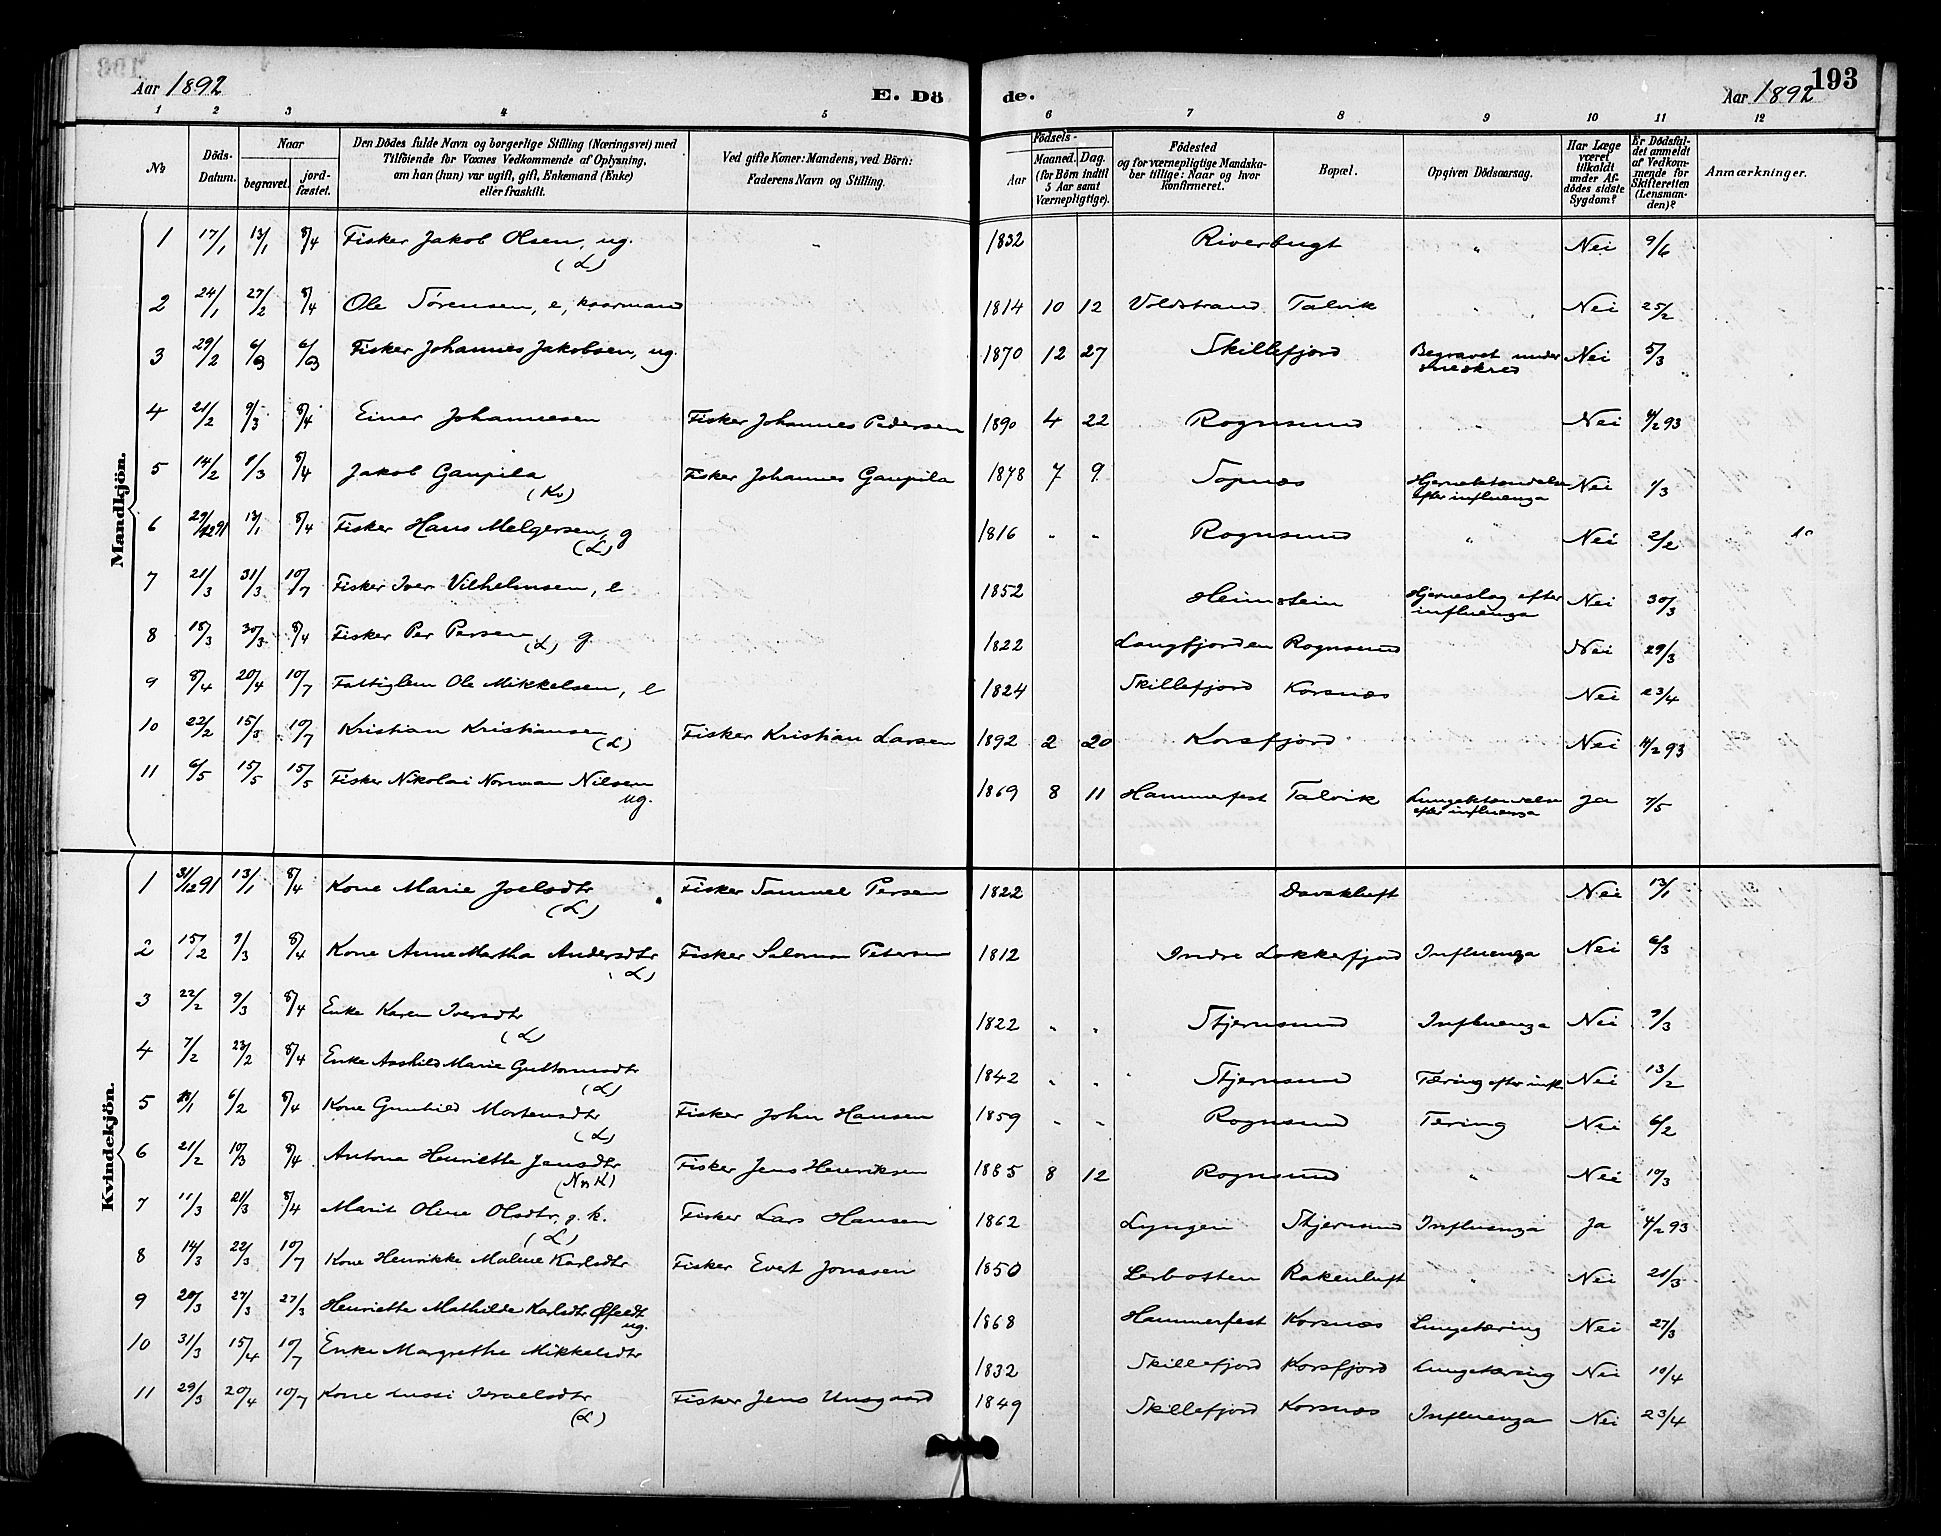 Aar 1892
E. Döde.
193
Aar 1892
1 2 3 4 5 6 7 8 9 10 11 12
No
Döds-Datum.
Naar
begravet.
jordfæstet.
Den Dödes fulde Navn og borgerlige Stilling (Næringsvei) med
Tilföiende for Voxnes Vedkommende af Oplysning,
om han (hun) var ugift, gift, Enkemand (Enke)
eller fraskilt.
Ved gifte Koner: Mandens, ved Börn:
Faderens Navn og Stilling.
Födsels-
Aar
Maaned. Dag.
(for Börn indtil
5 Aar samt
Værnepligtige).
Födested
og for værnepligtige Mandskaber tillige: Naar og hvor
konfirmeret.
Bopæl.
Opgiven Dödsaarsag.
Har Læge
været
tilkaldt
under Afdödes sidste
Sygdom?
Er Dödsfaldet anmeldt
af Vedkommende for
Skifteretten
(Lensmanden)?
Anmærkninger.
Mandkjön.
1 17/1 13/1 8/4 Fisker Jakob Olsen, ug. (L) 1832 Riverbugt " Nei 9/6
2 24/1 27/2 8/4 Ole Sörensen, e, 1814 10 12 Voldstrand Talvik " Nei 25/2
3 29/2 6/3 6/3 Fisker Johannes Jakobsen, ug. 1870 12 27 Skillefjord Begravet under sneskred Nei 5/3
4 21/2 9/3 8/4 Einar Johannesen Fisker Johannes Pedersen 1890 4 22 Rognsund Nei 4/2 93
5 14/2 9/3 8/4 Jakob Gaupila (Kv) Fisker Johannes Gaupila 1878 7 9 Sopnæs Hjernebetændelse efter influenza Nei 1/3
6 29/12 91 13/1 8/4 Fisker Hans Melgersen, g (L) 1816 " " Rognsund " Nei 2/2
7 21/3 31/3 10/7 Fisker Iver Vilhelmsen, e 1852 Heimstein Hjerneslag efter influenza Nei 30/3
8 18/3 30/3 8/4 Fisker Per Persen (L) g 1822 Langfjorden Rognsund Nei 29/3
9 8/4 20/4 10/7 Fattiglem Ole Mikkelsen, e 1824 Skillefjord Korsnæs Nei 23/4
10 22/2 15/3 10/7 Kristian Kristiansen (L) Fisker Kristian Larsen 1892 2 20 Korsfjord Nei 4/2 93
11 6/5 15/5 15/5 Fisker Nikolai Norman Nilsen ug. 1869 8 11 Hammerfest Talvik Lungebetændelse efter influenza Ja 7/5
Kvindekjön.
1 31/12 91 13/1 8/4 Kone Marie Joelsdtr (L) Fisker Samuel Persen 1822 Davskluft Nei 13/1
2 15/2 9/3 8/4 Kone Anne Martha Andersdtr (L) Fisker Salomon Petersen 1812 Indre Lokkerfjord Influenza Nei 6/3
3 22/2 9/3 8/4 Enke Karen Iversdtr (L) 1822 " " Stjernsund Influenza Nei 9/3
4 7/2 23/2 8/4 Enke Marie Guttormsdtr (L) 1842 " " Stjernsund Tæring efter infl. Nei 13/2
5 6/2 8/4 Kone Gunhild Mortensdtr (L) Fisker John Hansen 1859 " " Rognsund Tæring Nei 6/2
6 21/2 10/3 8/4 Antona Henriette Jensdtr (NvK) Fisker Jens Henriksen 1885 8 12 Rognsund " Nei 10/3
7 11/3 21/3 8/4 Marit Oline Olsdtr, g. k. (L) Fisker Lars Hansen 1862 Lyngen Stjernsund Influenza Ja 4/2 93
8 14/3 22/3 10/7 Kone Henrikke Malene Karlsdtr Fisker Evert Jonssen 1850 Lerbotten Rakenluft " Nei 21/3
9 20/3 27/3 27/3 Henriette Mathilde Karlsdtr ug. 1868 Hammerfest Korsnæs Lungetæring Nei 27/3
10 31/3 15/4 10/7 Enke Margrethe Mikkelsdtr 1832 Skillefjord Korsfjord Lungetæring Nei 10/4
11 29/3 20/4 10/7 Kone Lussi Israelsdtr (L) Fisker Jens Unsgaard 1849 Skillefjord Korsnæs Influenza Nei 23/4